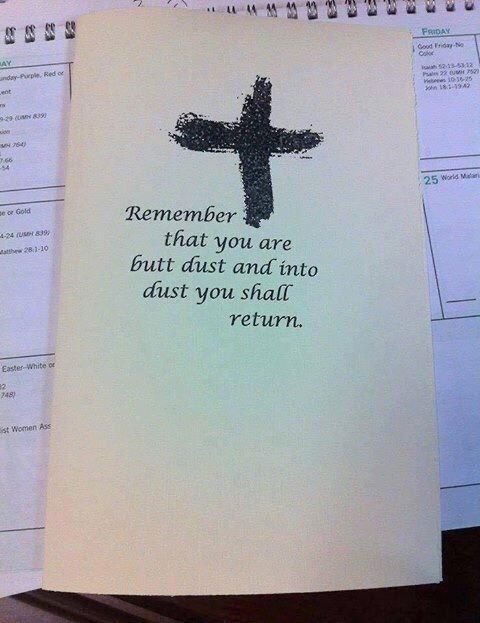 Remember
that you are
butt dust and into
dust you shall
return.
AY
unday-Purple, Red or
Lent
9-29 (UMH 839)
sion
MH 764)
7-66
-54
te or Gold
4-24 (UMH 839)
Matthew 28:1-10
Easter-White or
748)
ist Women Ass
FRIDAY
Good Friday-No
Color
Isaiah 52:13-53:12
Psalm 22 (UMH 752)
Hebrews 10:16-25
John 18:1-19:42
25 World Malari